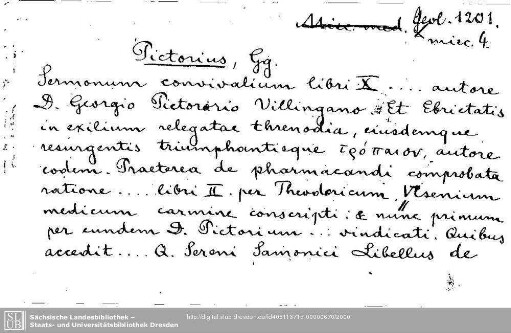 Misc. med. Geol. 1201.
misc. 4.
Pictorius, Gg.
Sermonum convivalium libri X .... autore
D. Georgio Pictorio Villingano. Et Ebrietatis
in exilium relegatae threnodia, eiusdemque
resurgentis triumphantisque τρόπαιον, autore
eodem. Praeterea de pharmacandi comprobata
ratione .... libri II. per Theodoricum Vlsenium
medicum carmine conscripti: & nunc primum
per eundem D. Pictorium ... vindicati. Quibus
accedit .... Q. Sereni Samonici Libellus de
SLUB
Sächsische Landesbibliothek –
Staats- und Universitätsbibliothek Dresden